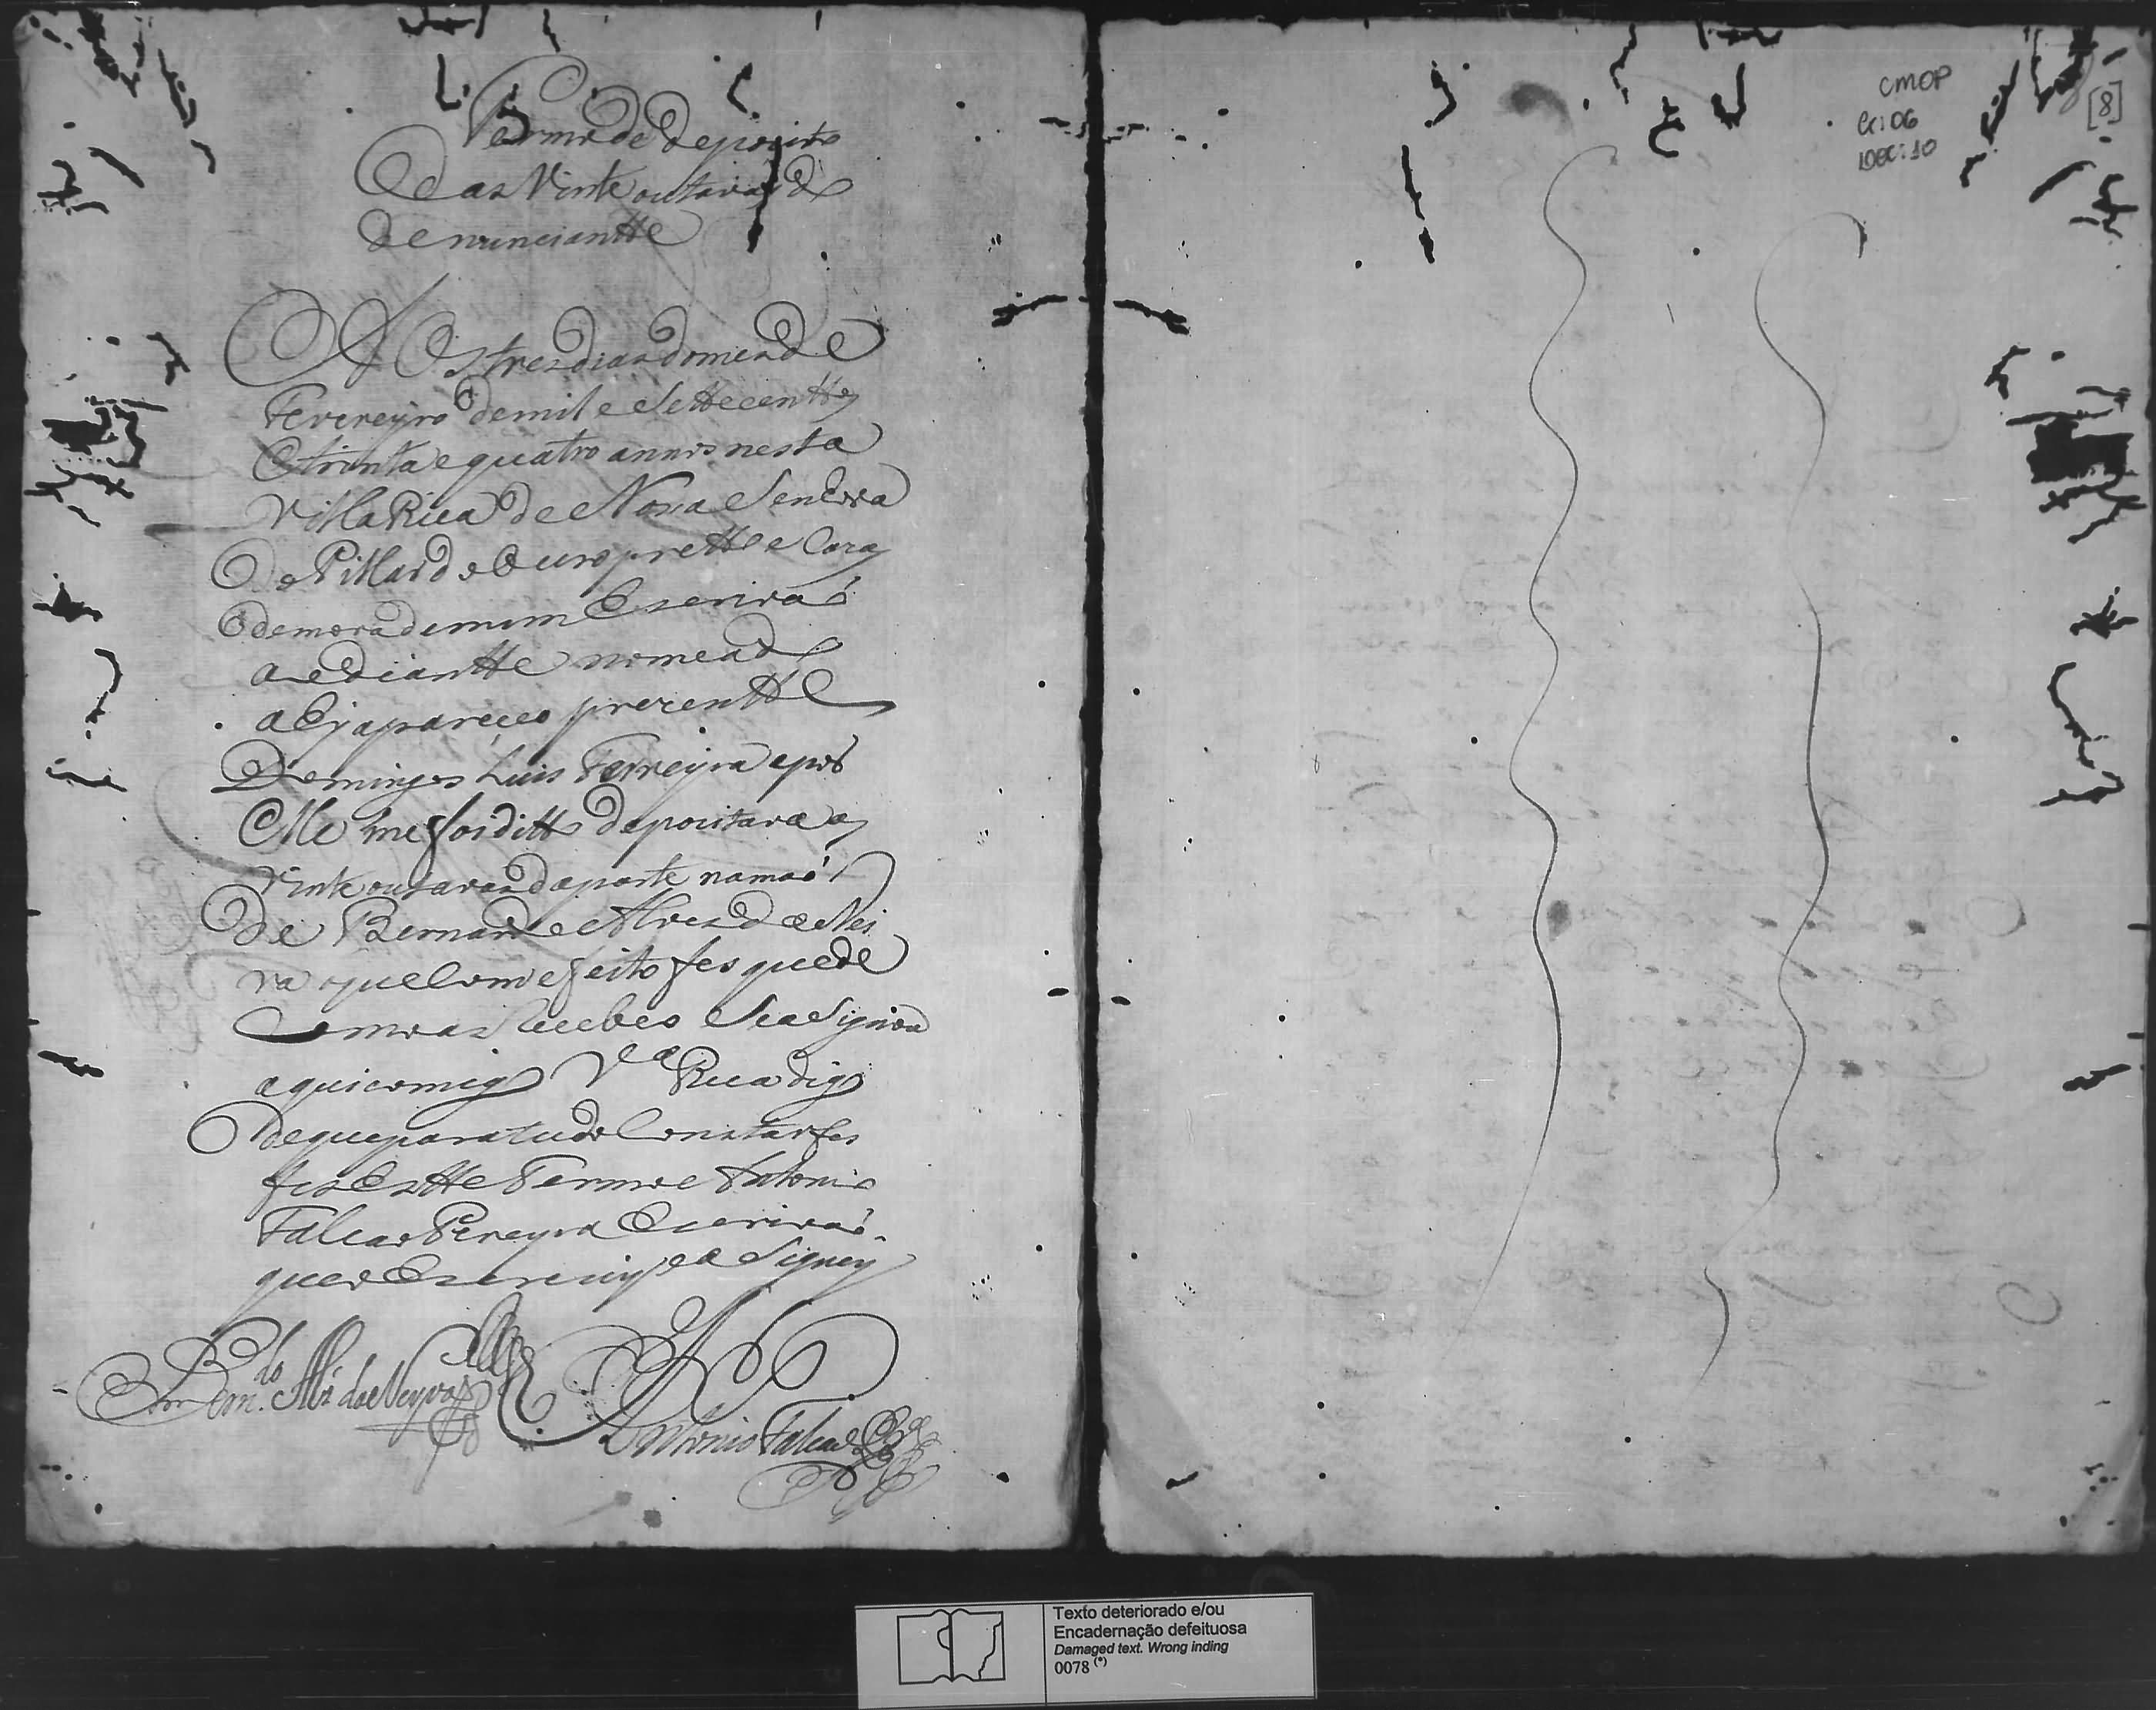 Termo de depozito
das Vinte outavas do
denunciantte
Aos tres dias do mes de
Fevereyro de mil e Settecenttos
e trinta e quatro annos nesta
Villa Rica de Nosa Senhora
do Pillar do Ouro pretto e Cazas
de morada de mim Escrivaó
aediantte nomeado
ahy apareçeo prezentte
Domingos Luis Ferreyra e por
elle me foi ditto depozitava as
vinte outavas da parte na maó
de Bernardo Alves da Nei
va que Com efeito fes que de
Como as Recebeo Se asignou
aqui comigo V.ª Rica digo
de que para tudo Constar fes
fis Estte Termo e Antonio
Falcao Pereyra Escrivaó
que o Escrevy e aSigney
Bern.do Alz da Neyva
Antonio Falcao Pr.ª
CMOP
Cx: 06
DOC: 10
[8]
Texto deteriorado e/ou
Encadernação defeituosa
Damaged text. Wrong inding
0078 (*)